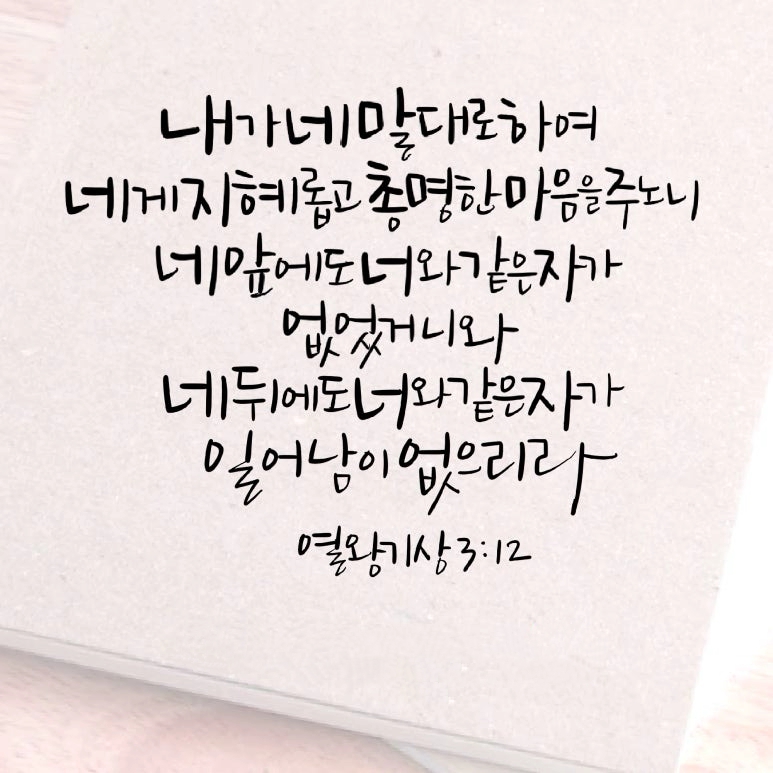 내가 네 말대로 하여
네게 지혜롭고 총명한 마음을 주노니
네 앞에도 너와 같은 자가
없었거니와
네 뒤에도 너와 같은 자가
일어남이 없으리라
열왕기상 3:12